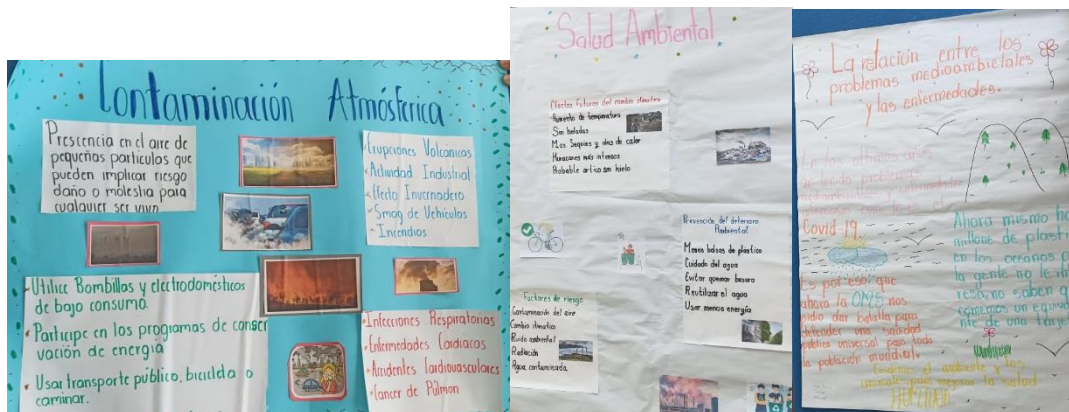 Contaminación Atmósferica
Prescencia en el aire de
pequeñas particulas que
pueden implicar riesgo
daño o molestia para
cualquier ser vivo
Erupciones Volcanicas
Actividad Industrial
Efecto Invernadero
Smog de Vehículos
Incendios
Utilice Bombillas y electrodomésticos
de bajo consumo
Participe en los programas de conser
vación de energía
Usar transporte público, bicicleta o
caminar.
Infecciones Respiratorias
Enfermedades Cardiacas
Accidentes Cardiovasculares
Cancer de Pulmon
Salud Ambiental
Efectos Futuros del cambio climatico
Aumento de temperatura
Sin heladas
Mas Sequias y olas de calor
Huracanes más intensos
Probable artico sin hielo
Prevención del deterioro
Ambiental
Menos bolsas de plastico
Cuidado del agua
Evitar quemar basura
Reutilizar el agua
Usar menos energía
Factores de riesgo
Contaminación del aire
Cambio climatico
Ruido ambiental
Radiación
Agua contaminada
La relación entre los
problemas medioambietales
y las enfermedades.
En los ultimos años
problemas
Covid-19
Es por eso que
ahora la OMS nos
pidio dar batalla para
defender una sanidad
pública universal para toda
la población mundial.
Ahora mismo ha
millone de plasti
en los oceanos
la gente no le
resa, no saben q
comemos un equiva
te de una tarje
Cuidemos el ambiente y los
para mejorar la salud
HUMANA